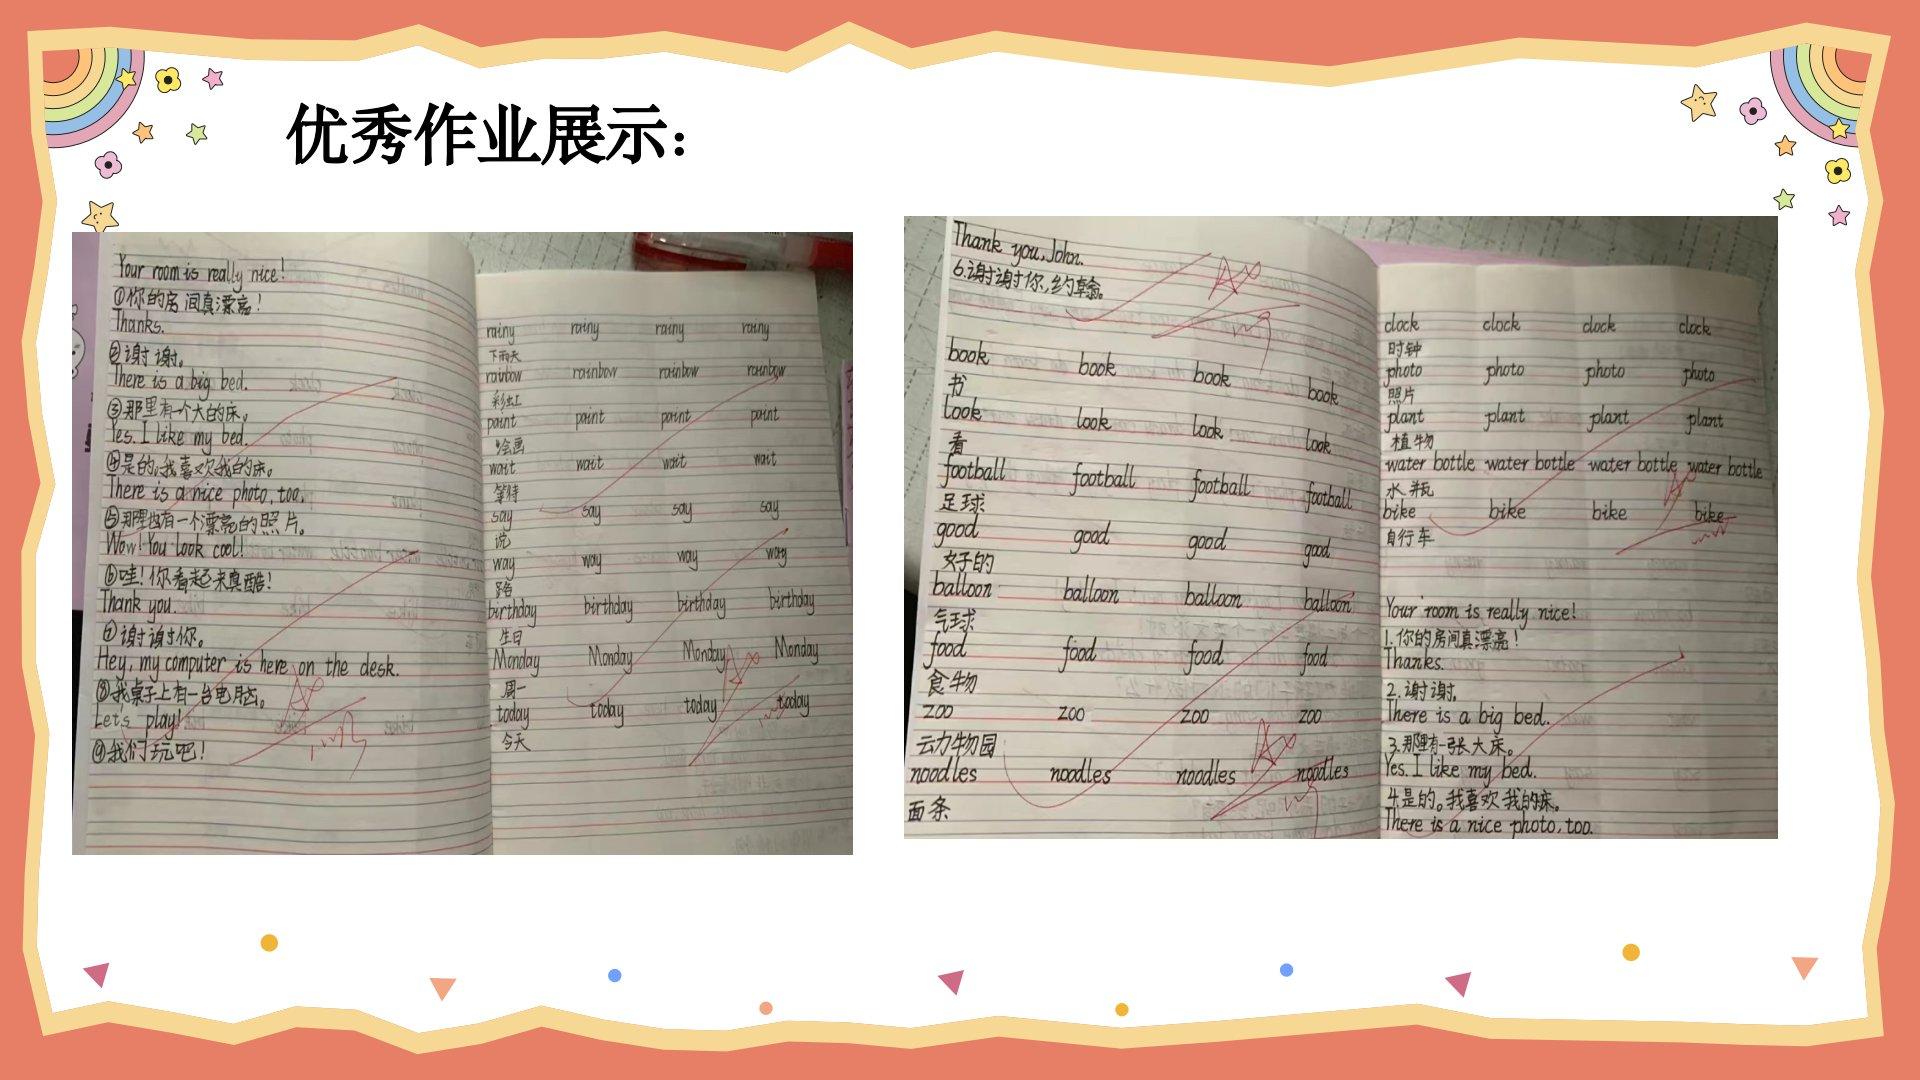 优秀作业展示：
Your room is really nice!
①你的房间真漂亮!
Thanks.
②谢谢。
There is a big bed.
③那里有一个大的床。
Yes. I like my bed.
④是的,我喜欢我的床。
There is a nice photo, too.
⑤那里也有一个漂亮的照片。
Wow! You look cool!
⑥哇!你看起来真酷!
Thank you.
⑦谢谢你。
Hey, my computer is here on the desk.
⑧我桌子上有一台电脑。
Let's play!
⑨我们玩吧!
rainy rainy rainy rainy
下雨天
rainbow rainbow rainbow rainbow
彩虹
paint paint paint paint
绘画
wait wait wait wait
等待
say say say say
说
way way way way
路
birthday birthday birthday birthday
生日
Monday Monday Monday Monday
周一
today today today today
今天
Thank you, John.
6.谢谢你,约翰。
book book book book
书
look look look look
看
football football football football
足球
good good good good
好的
balloon balloon balloon balloon
气球
food food food food
食物
zoo zoo zoo zoo
动物园
noodles noodles noodles noodles
面条
clock clock clock clock
时钟
photo photo photo photo
照片
plant plant plant plant
植物
water bottle water bottle water bottle water bottle
水瓶
bike bike bike bike
自行车
Your room is really nice!
1.你的房间真漂亮!
Thanks.
2.谢谢。
There is a big bed.
3.那里有一张大床。
Yes. I like my bed.
4.是的。我喜欢我的床。
There is a nice photo, too.